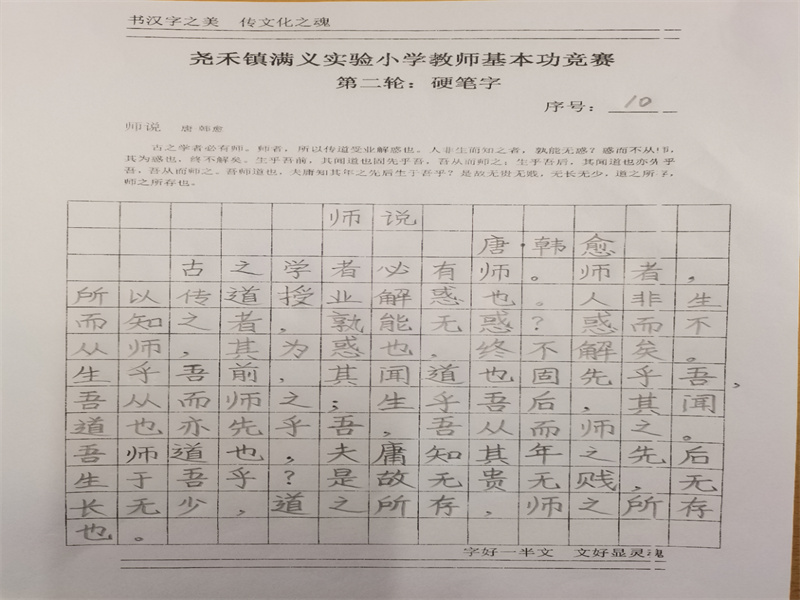 书汉字之美 传文化之魂
尧禾镇满义实验小学教师基本功竞赛
第二轮：硬笔字
序号：10
师说 唐 韩愈
古之学者必有师。师者，所以传道受业解惑也。人非生而知之者，孰能无惑？惑而不从师，
其为惑也，终不解矣。生乎吾前，其闻道也固先乎吾，吾从而师之；生乎吾后，其闻道也亦先乎
吾，吾从而师之。吾师道也，夫庸知其年之先后生于吾乎？是故无贵无贱，无长无少，道之所存，
师之所存也。
师说
唐·韩愈
古之学者必有师。师者，
所以传道授业解惑也。人非生
而知之者，孰能无惑？惑而不
从师，其为惑也，终不解矣。
生乎吾前，其闻道也固先乎吾，
吾从而师之；生乎吾后，其闻
道也亦先乎吾，吾从而师之。
吾师道也，夫庸知其年之先后
生于吾乎？是故无贵无贱，无
长无少，道之所存，师之所存
也。
字好一半文 文好显灵魂